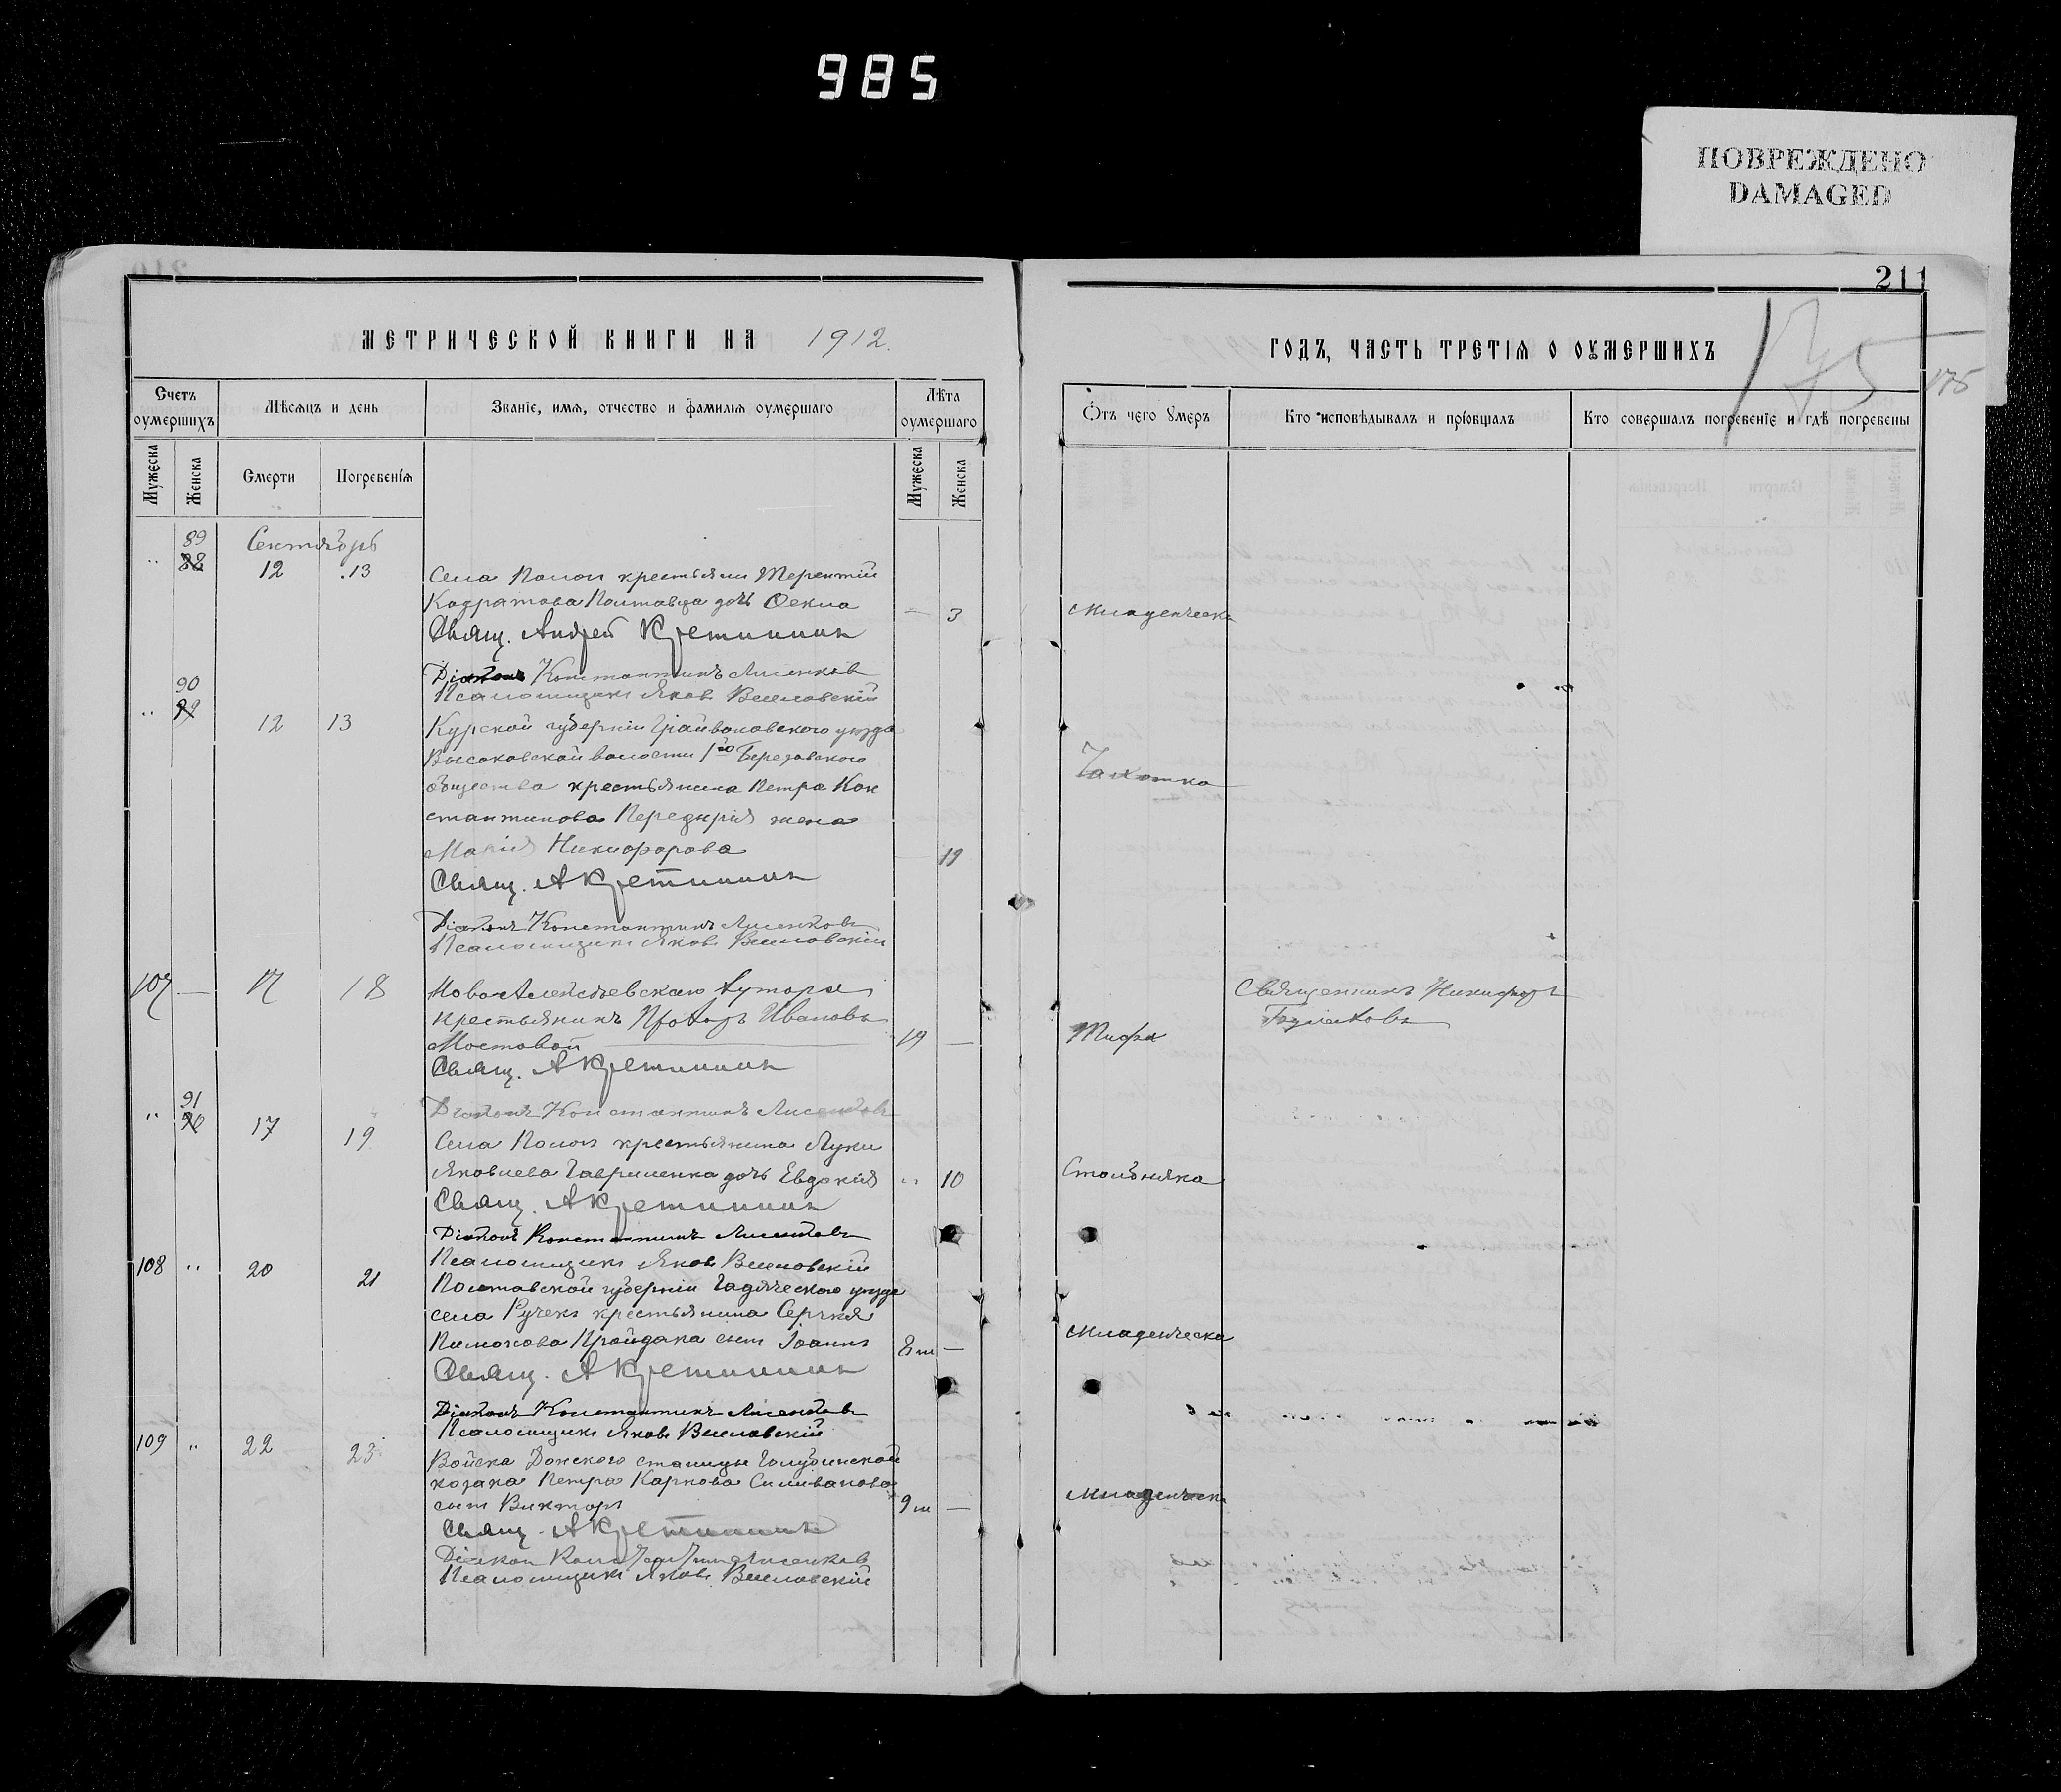 985
ПОВРЕЖДЕНО
DAMAGED
211
МЕТРИЧЕСКОЙ КНИГИ НА 1912.
ГОДЪ, ЧАСТЬ ТРЕТІЯ О ОУМЕРШИХЪ
175
Счетъ оумершихъ
Мѣсяцъ и день
Званіе, имя, отчество и фамилія оумершаго
Лѣта оумершаго
Отъ чего умеръ
Кто исповѣдывалъ и пріобщалъ
Кто совершалъ погребеніе и гдѣ погребены
Мужеска
Женска
Смерти
Погребенія
Мужеска
Женска
89 Сентябрь
88 12 13 Села Полог крестьянин Терентій
Кодратова Полтавца дочь Фекла — 3 младенческ
Свящ. Андрей Кретинин
Діаконъ Константинъ Лисенков
Псаломщикъ Яков Веселовскій
90
89 12 13 Курской губерніи Грайвоновского уезда
Высоковской волости 1го Березовского
общества крестьянина Петра Кон
стантинова Передкрія жена
Марія Никифорова — 19 Чахотка
Свящ. А Кретинин
Діаконъ Константинъ Лисенков
Псаломщикъ Яков Веселовскій
107 — 17 18 Ново-Алексѣевскаго хутора
крестьянинъ Прохоръ Ивановъ
Мостовой 19 — Тифа Священникъ Никифоръ
Свящ. А Кретинин
91 Діаконъ Константинъ Лисенков
90 17 19 Села Полог крестьянина Луки
Яковлева Гавриленка дочь Евдокія 10 Столбняка
Свящ. А Кретинин
Діаконъ Константинъ Лисенков
Псаломщикъ Яков Веселовскій
108 20 21 Полтавской губерніи Гадяческого уезда
села Ручек крестьянина Сергѣя
Пимонова Пройдака сын Іоаннъ 8 м — младенческа
Свящ. А Кретинин
Діаконъ Константинъ Лисенков
Псаломщикъ Яков Веселовскій
109 22 23 Войска Донского станицы Голубинской
козака Петра Карпова Силиванова
сын Викторъ 9 м — младенческ
Свящ. А Кретинин
Діакон Константин Лисенков
Псаломщикъ Яков Веселовскій